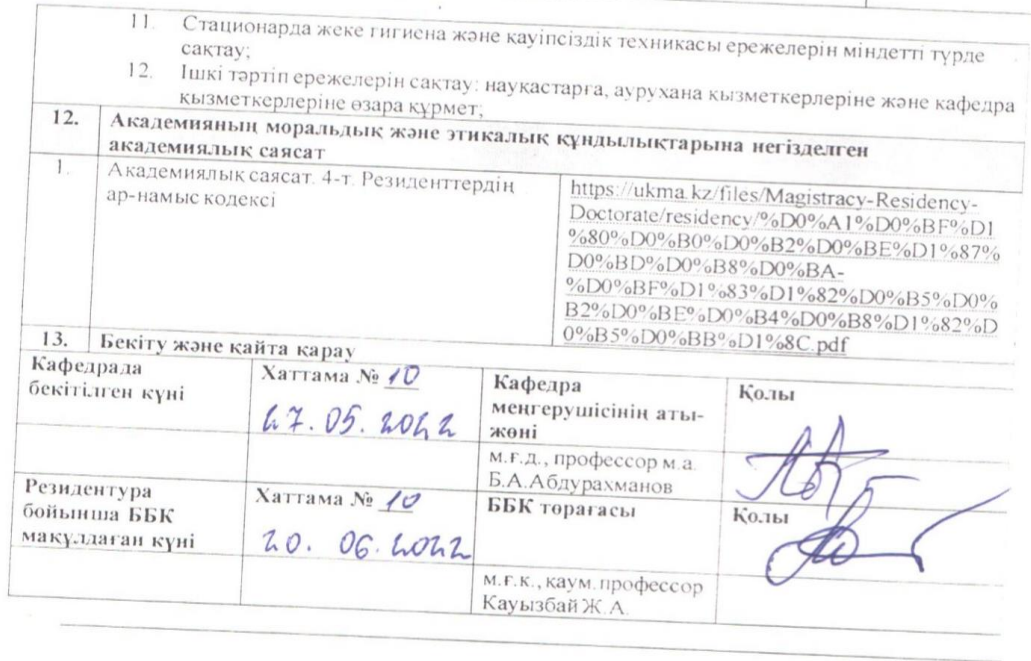 11. Стационарда жеке гигиена және қауіпсіздік техникасы ережелерін міндетті түрде
сақтау;
12. Ішкі тәртіп ережелерін сақтау: науқастарға, аурухана қызметкерлеріне және кафедра
қызметкерлеріне өзара құрмет;
12. Академияның моральдық және этикалық құндылықтарына негізделген
академиялық саясат
1. Академиялық саясат. 4-т. Резиденттердің
ар-намыс кодексі
https://ukma.kz/files/Magistracy-Residency-
Doctorate/residency/%D0%A1%D0%BF%D1
%80%D0%B0%D0%B2%D0%BE%D1%87%
D0%BD%D0%B8%D0%BA-
%D0%BF%D1%83%D1%82%D0%B5%D0%
B2%D0%BE%D0%B4%D0%B8%D1%82%D
0%B5%D0%BB%D1%8C.pdf
13. Бекіту және қайта қарау
Кафедрада
бекітілген күні
Хаттама № 10
27.05.2022
Кафедра
меңгерушісінің аты-
жөні
Қолы
м.ғ.д., профессор м.а.
Б.А.Абдурахманов
Резидентура
бойынша ББК
мақұлдаған күні
Хаттама № 10
20.06.2022
ББК төрағасы
Қолы
м.ғ.к., қаум.профессор
Кауызбай Ж.А.